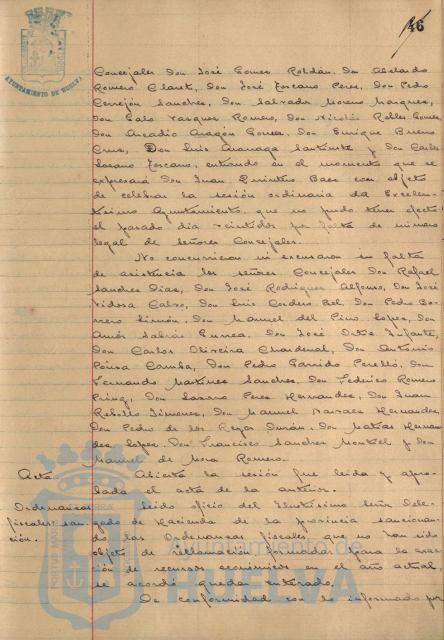 46
AYUNTAMIENTO DE HUELVA
Concejales Don José Gomez Roldán, Don Abelardo
Romero Claret, Don José Toscano Perez, Don Pedro
Cerrejón Sanchez, Don Salvador Moreno Marquez,
Don Galo Vazquez Romero, Don Nicolás Robles Gomez,
Don Arcadio Aragón Gomez, Don Enrique Bueno
Cruz, Don Luis y Don Carlos
Lozano Toscano, entrando en el momento que se
expresará Don Juan Quintero Baez con objeto
de celebrar la sesión ordinaria del Excelen-
tisimo Ayuntamiento, que no pudo tener efecto
el pasado dia veintidos por falta de número
legal de señores Concejales.
No concurrieron ni excusaron su falta
de asistencia los señores Concejales Don Rafael
Sanchez Diaz, Don José Rodriguez Alfonso, Don José
Vidosa Calvo, Don Luis Cordero Bel, Don Pedro Bo-
rrero Limón, Don Manuel del Pino Lopez, Don
Amós Sabrás Gurrea, Don José Ortiz Infante,
Don Carlos Oliveira Chardenal, Don Antonio
Pousa Camba, Don Pedro Garrido Perelló, Don
Fernando Martinez Sanchez, Don Federico Romero
Don Lazaro Perez Hernandez, Don Juan
Rebollo Jimenez, Don Manuel Narvaez Hernandez,
Don Pedro de los Reyes Durán, Don Matías Hernan-
dez Lopez, Don Francisco Sanchez Montiel y Don
Manuel de Mora Romero.
Acta. Abierta la sesión fue leida y apro-
bada el acta de la anterior.
Ordenanzas Leido oficio del Ilustrisimo Señor Dele-
fiscales: san- gado de Hacienda de la provincia sancionan-
ción. do las Ordenanzas fiscales que no han sido
objeto de reclamación formadas para la exac-
ción de recursos económicos en el año actual,
se acordó quedar enterado.
De conformidad con lo informado por
Ayuntamiento de
HUELVA